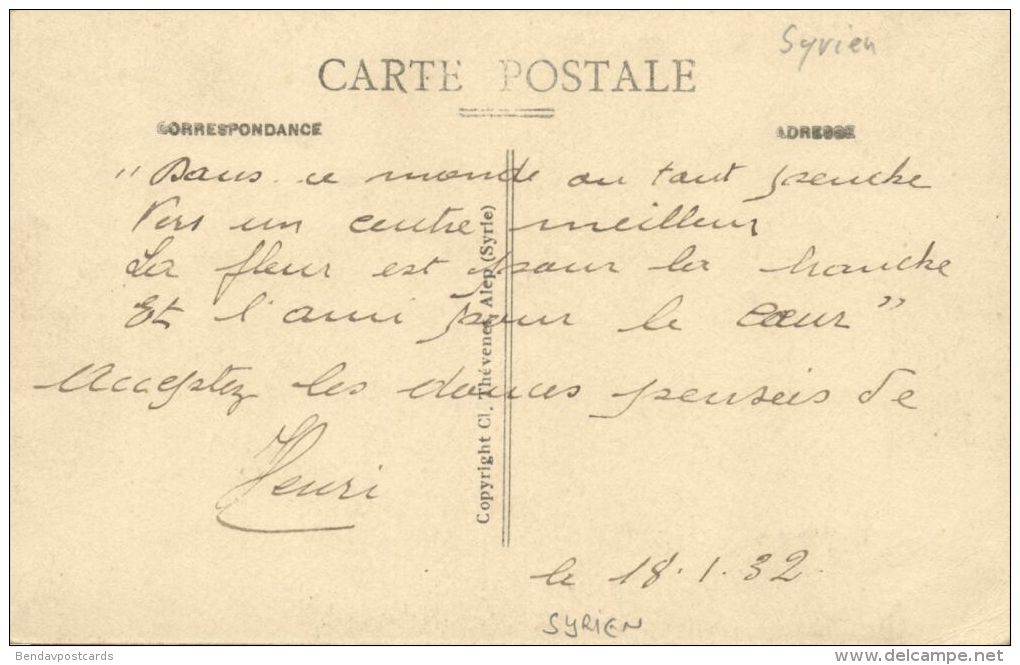 Syrien
CARTE POSTALE
CORRESPONDANCE
ADRESSE
"Dans ce monde ou tout penche
Vers un centre meilleur
La fleur est pour la branche
Et l'ami pour le cœur"
Acceptez les douces pensées de
Henri
Copyright Cl. Thévenet, Alep (Syrie)
le 18.1.32
SYRIEN
Bendavpostcards
delcampe.net